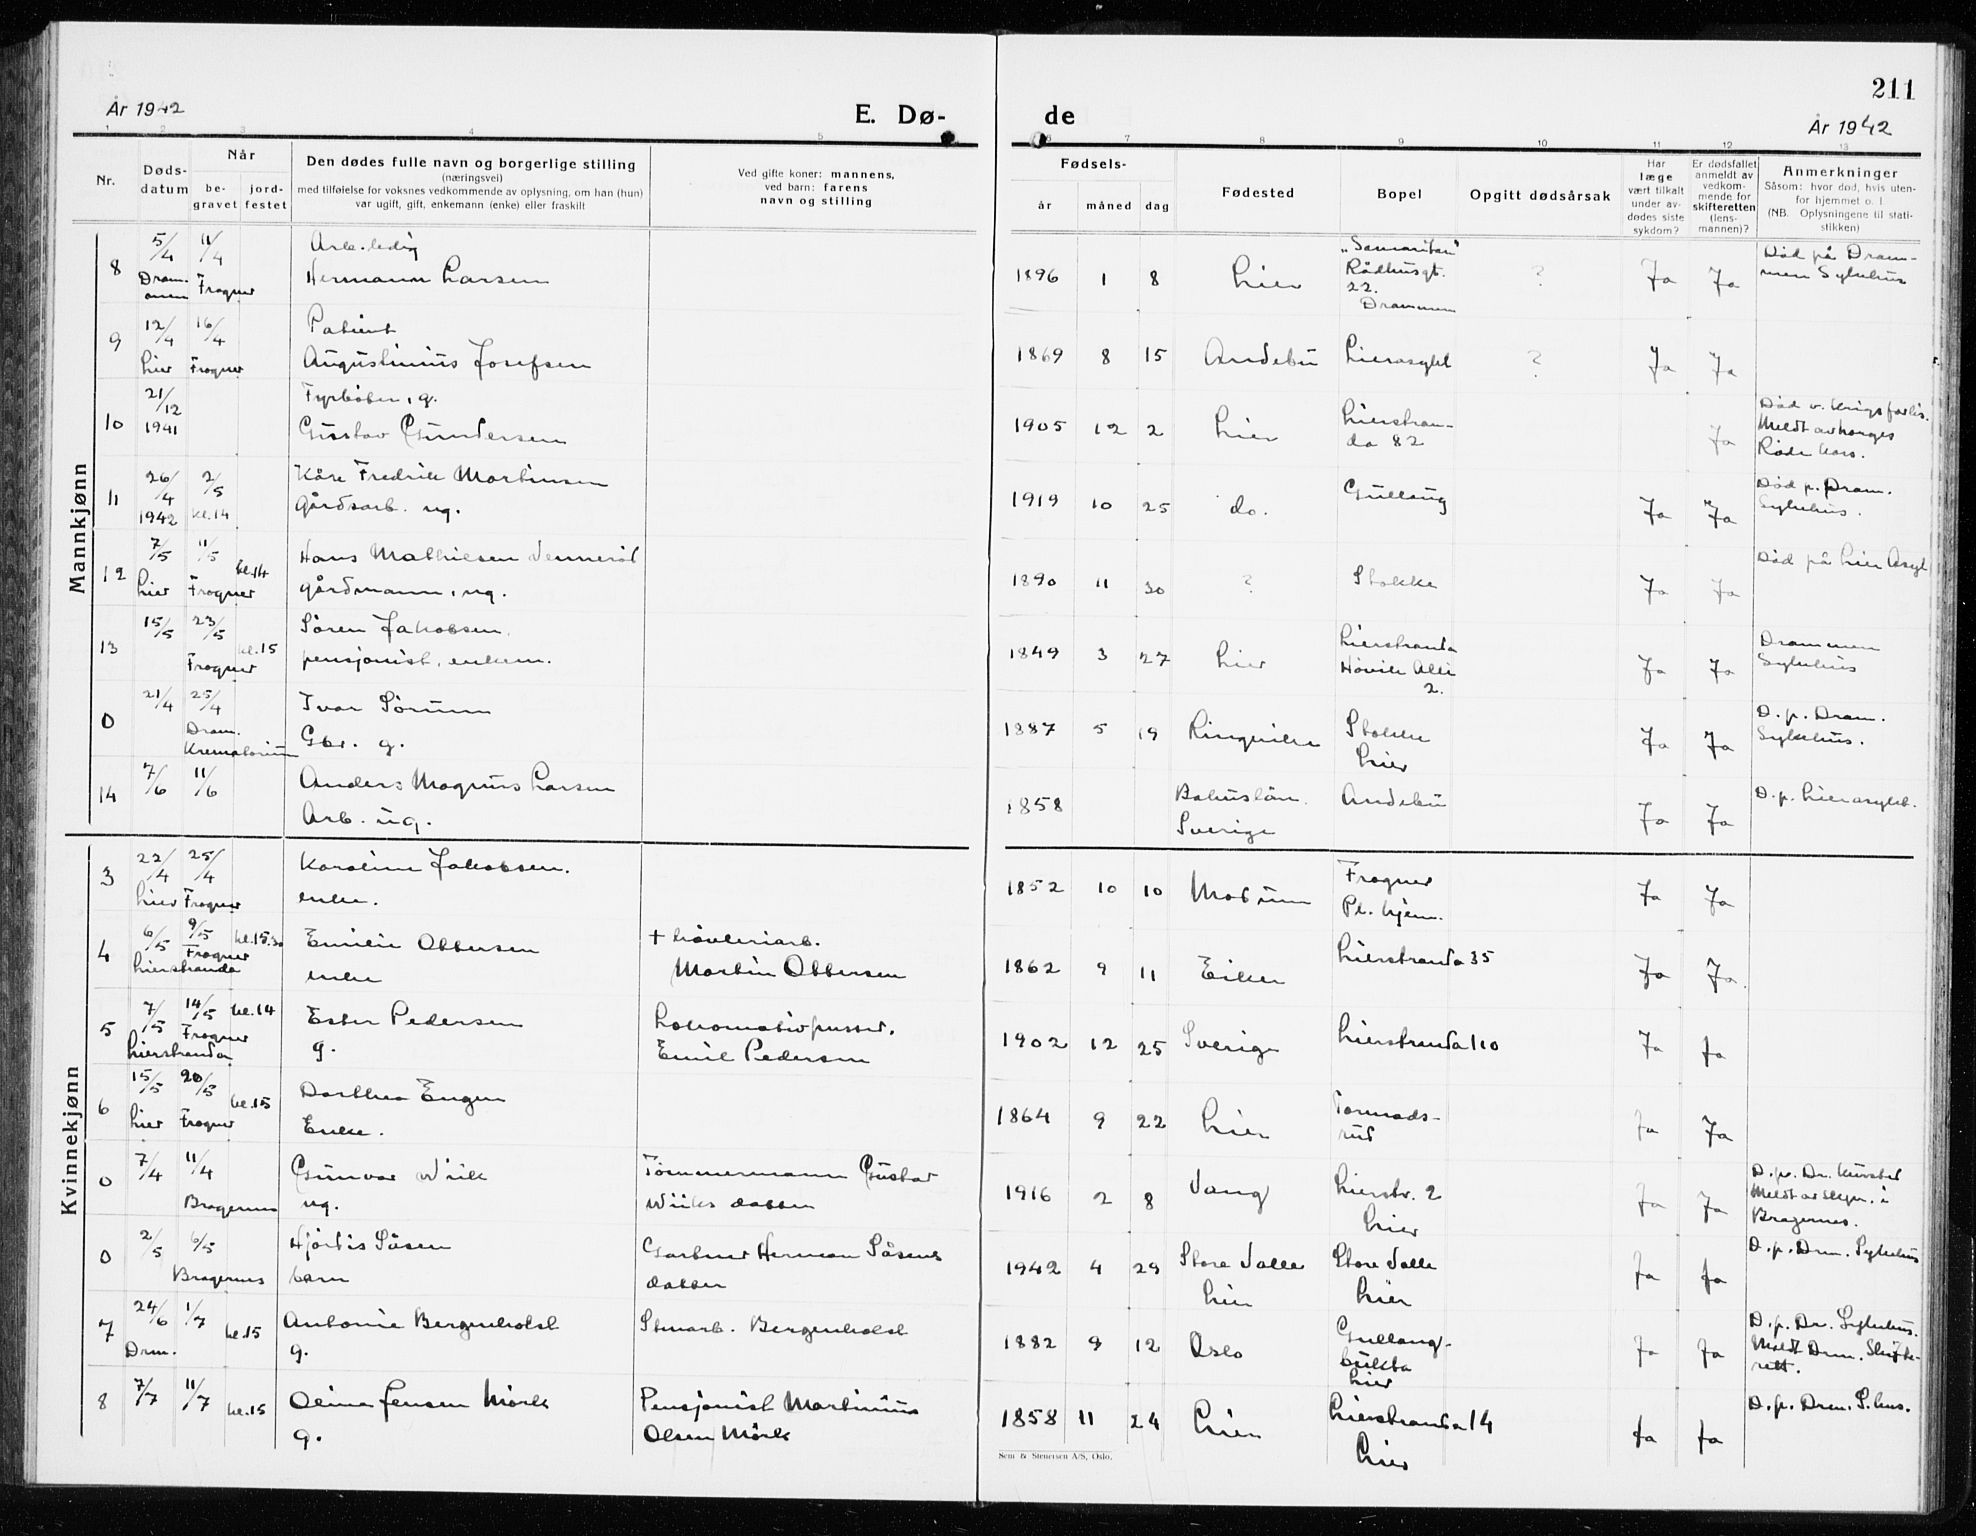 211
År 1942
E. Dø-
de
År 1942
1 2 3 4 5 6 7 8 9 10 11 12 13
Nr.
Døds-
datum
Når
be-
gravet
jord-
festet
Den dødes fulle navn og borgerlige stilling
(næringsvei)
med tilføielse for voksnes vedkommende av oplysning, om han (hun)
var ugift, gift, enkemann (enke) eller fraskilt
Ved gifte koner: mannens,
ved barn: farens
navn og stilling
Fødsels-
år måned dag
Fødested
Bopel
Opgitt dødsårsak
Har
læge
vært tilkalt
under av-
dødes siste
sykdom?
Er dødsfallet
anmeldt av
vedkom-
mende for
skifteretten
(lens-
mannen)?
Anmerkninger
Såsom: hvor død, hvis uten-
for hjemmet o. l.
(NB. Oplysningene til stati-
stikken)
Mannkjønn
8 5/4 Dram-
men 11/4 Frogner
Arb. ledig
Hermann Larsen
1896 1 8 Lier
"Samaritan"
Rådhusgt.
22.
Drammen
? Ja Ja
Død på Dram-
men Sykehus
9 12/4 Lier 16/4 Frogner
Patient
Augustinius Josefsen
1869 8 15 Andebu Lierasylet ? Ja Ja
10 21/12
1941
Fyrbøter, g.
Gustav Gundersen
1905 12 2 Lier
Lierstran-
da 82
Ja
Død v. krigsforlis.
Meldt av Norges
Røde Kors.
11 26/4
1942 2/5
kl. 14
Kåre Fredrik Martinsen
gårdsarb. ug.
1919 10 25 do. Gullaug Ja Ja
Død p. Dram.
Sykehus.
12 7/5 Lier 11/5 Frogner kl. 14
Hans Mathiesen Vennerød
gårdmann, ug.
1890 11 30 ? Stokke Ja Ja
Død på Lier Asyl
13 15/5 23/5 Frogner kl. 15
Søren Jakobsen,
pensjonist, enkem.
1849 3 27 Lier
Lierstranda
Høvik Allé
2.
Ja Ja
Drammen
Sykehus
0 21/4 25/4
Dram.
Krematorium
Ivar Sørum
Gbr. g.
1887 5 19 Ringerike
Stokke
Lier
Ja Ja
D. p. Dram.
Sykehus.
14 7/6 11/6
Anders Magnus Larsen
Arb. ug.
1858
Bohuslän.
Sverige
Andebu Ja Ja
D. p. Lierasylet.
Kvinnekjønn
3 22/4 Lier 25/4 Frogner
Karoline Jakobsen.
enke.
1852 10 10 Modum
Frogner
Pl. hjem.
Ja Ja
4 6/5 9/5 Frogner kl. 15.30
Lierstranda
Emilie Ottersen
enke
+ høvleriarb.
Martin Ottersen
1862 9 11 Eiker Lierstranda 35 Ja Ja
5 7/5 14/5 Frogner kl. 14
Lierstranda
Ester Pedersen
g.
Lokomotivpusser,
Emil Pedersen
1902 12 25 Sverige Lierstranda 110 Ja Ja
6 15/5 Lier 20/5 Frogner kl. 15
Dorthea Engen
Enke.
1864 9 22 Lier
Tormods-
rud
Ja Ja
0 7/4 11/4
Bragernes
Gunvor Wiik
ug.
Tømmermann Gustav
Wiiks datter
1916 2 8 Vang
Lierstr. 2
Lier
Ja Ja
Meldt av Skpr. i
Bragernes.
0 2/5 6/5
Bragernes
Hjørdis Såsen
barn
Gartner Herman Såsens
datter
1942 4 29
Store Valle
Lier
Store Valle
Lier
Ja Ja
D. p. Drm. Sykehus
7 24/6
Drm. 1/7 kl. 15
Antonie Bergenholst
g.
Stenarb. Bergenholst
1882 9 12 Oslo
Gullaug-
bukta
Lier
Ja Ja
D. p. Dr. Sykehus.
Meldt Drm. Skifte-
rett.
8 7/7 11/7 kl. 15
Oline Jensen Mørk
g.
Pensjonist Martinius
Olsen Mørk
1858 11 24 Lier
Lierstranda 14
Lier
Ja Ja
D. p. Drm. S.hus.
Sem & Stenersen A/S, Oslo.